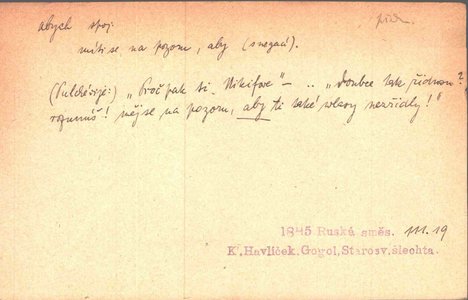 abych spoj.
míti se na pozoru, aby (s negací).
(Pulcherije:) „Pročpak ti, Nikifore" – .. „doubce tak řídnou?
rozumíš! měj se na pozoru, aby ti také vlasy nezřídly!"
1845 Ruská směs. III. 19
K. Havlíček. Gogol, Starosv. šlechta.